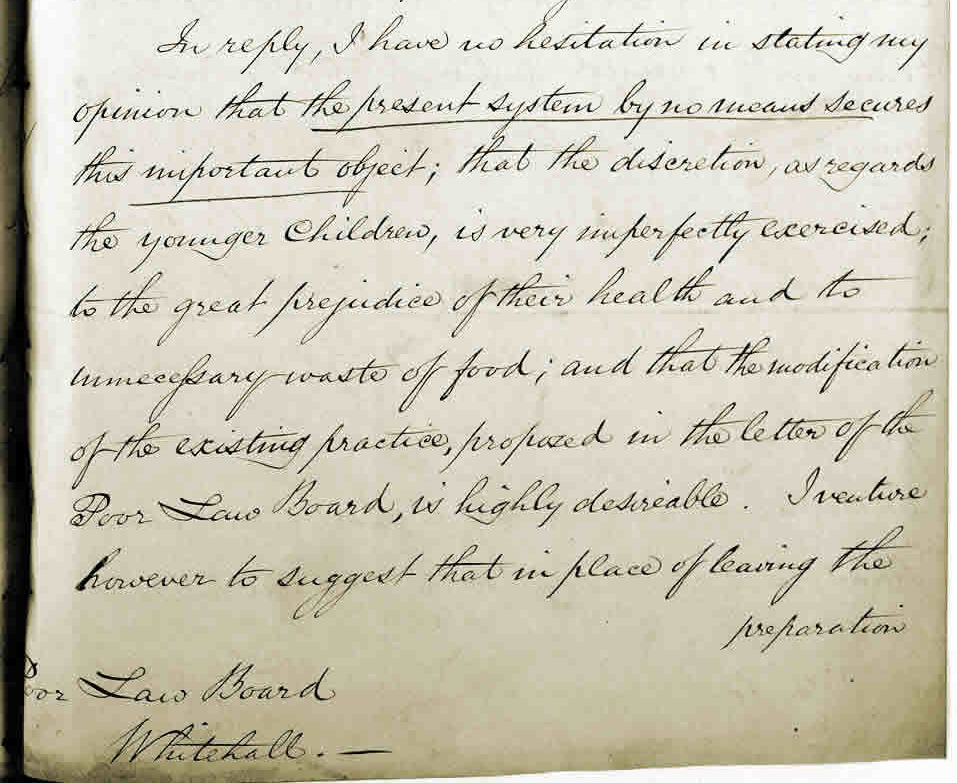 In reply, I have no hesitation in stating my
opinion that the present system by no means secures
this important object; that the discretion, as regards
the younger Children, is very imperfectly exercised;
to the great prejudice of their health and to
unnecessary waste of food; and that the modification
of the existing practice, proposed in the letter of the
Poor Law Board, is highly desireable. I venture
however to suggest that in place of leaving the
preparation
Poor Law Board
Whitehall. —